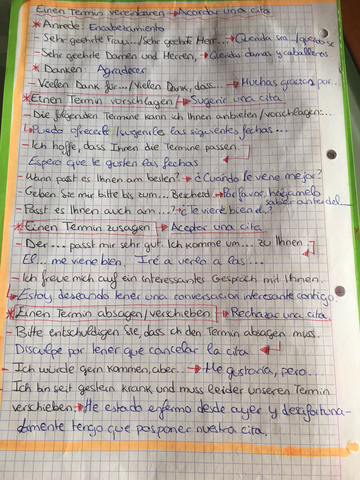 Einen Termin vereinbaren → Acordar una cita
* Anrede: Encabezamiento
- Sehr geehrte Frau.../Sehr geehrte Herr... → Querida sra.../querido sr
- Sehr geehrte Damen und Herren, → Queridas damas y caballeros
* Danken: Agradecer
- Vielen Dank für.../Vielen Dank, dass... → Muchas gracias por...
* Einen Termin vorschlagen → Sugerir una cita
- Die folgenden Termine kann ich Ihnen anbieten/vorschlagen:...
Puedo ofrecerle/sugerirle las siguientes fechas...
- Ich hoffe, dass Ihnen die Termine passen.
Espero que te gusten las fechas
- Wann passt es Ihnen am besten? → ¿Cuándo le viene mejor?
- Geben Sie mir bitte bis zum... Bescheid. → Por favor, hágamelo
saber antes del...
- Passt es Ihnen auch am...? → ¿Le viene bien el...?
* Einen Termin zusagen → Aceptar una cita
- Der... passt mir sehr gut. Ich komme um... zu Ihnen.
El... me viene bien. Iré a verlo a las...
- Ich freue mich auf ein interessantes Gespräch mit Ihnen.
Estoy deseando tener una conversación interesante contigo.
* Einen Termin absagen/verschieben → Rechazar una cita
- Bitte entschuldigen Sie, dass ich den Termin absagen muss.
Disculpe por tener que cancelar la cita
- Ich würde gern kommen, aber... → Me gustaría, pero...
- Ich bin seit gestern krank und muss leider unseren Termin
verschieben → He estado enfermo desde ayer y desafortuna-
damente tengo que posponer nuestra cita.